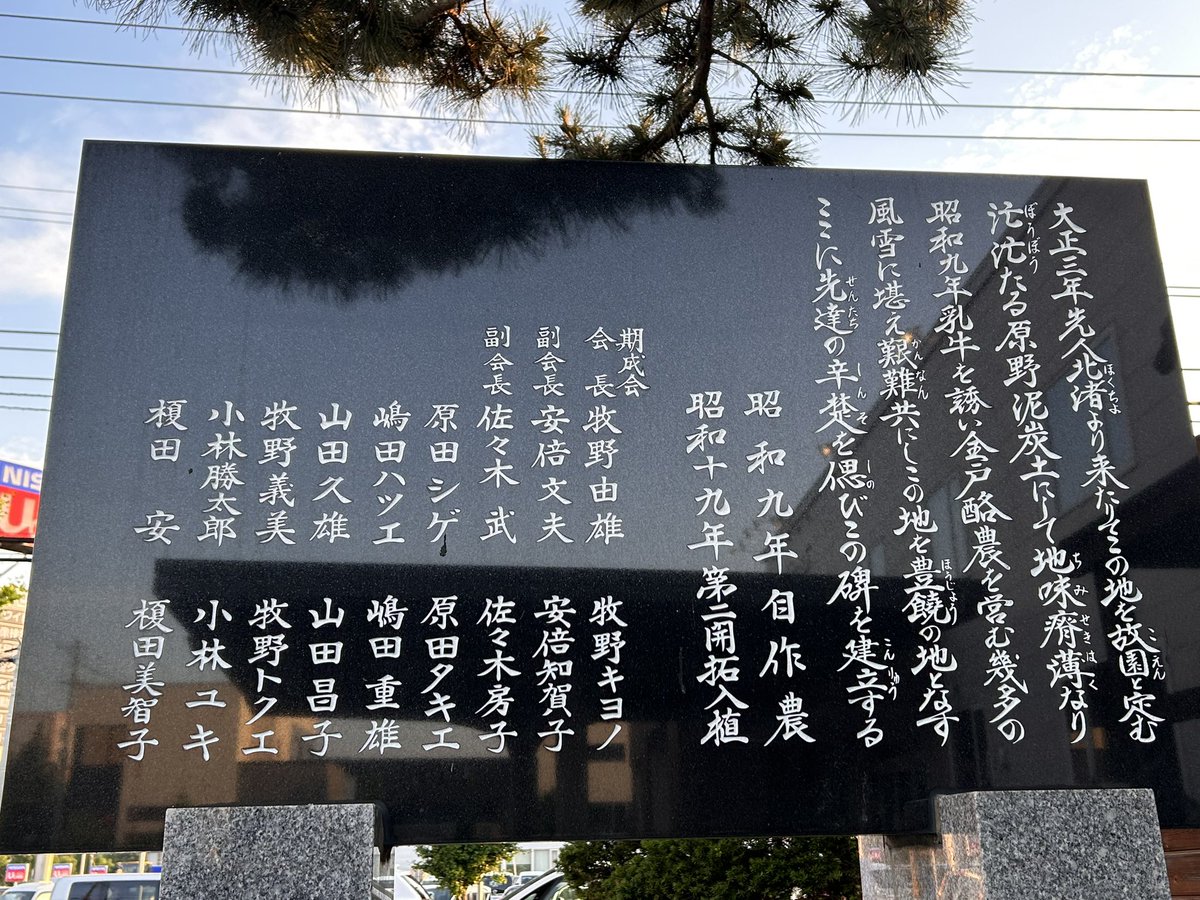 大正三年先人北渚より来たりてこの地を故園と定む
ほくちょ こえん
汒汒たる原野泥炭土にして地味瘠薄なり
ぼうぼう ちみ せきはく
昭和九年乳牛を誘い金戸酪農を営む幾多の
風雪に堪え艱難共にしこの地を豊饒の地となす
かんなん ほうじょう
ここに先達の辛楚を偲びこの碑を建立する
せんたち しんそ しの こんりゅう
昭和九年自作農
昭和十九年第二開拓入植
期成会
会長 牧野由雄 牧野キヨノ
副会長 安倍文夫 安倍知賀子
副会長 佐々木武 佐々木房子
原田シゲ 原田タキエ
嶋田ハツエ 嶋田重雄
山田久雄 山田昌子
牧野義美 牧野トクエ
小林勝太郎 小林ユキ
榎田安 榎田美智子
NIS